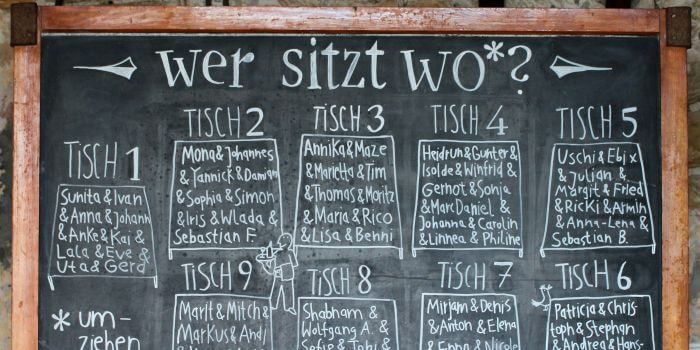 wer sitzt wo*?
TISCH 1
Sunita & Ivan
& Anna & Johann
& Anke & Kai &
Lala & Eve &
Uta & Gerd
TISCH 2
Mona & Johannes
& Yannick & Damian
& Sophia & Simon
& Iris & Wlada &
Sebastian F.
TISCH 3
Annika & Maze
& Marietta & Tim
& Thomas & Moritz
& Maria & Rico
& Lisa & Benni
TISCH 4
Heidrun & Gunter &
Isolde & Winfrid &
Gernot & Sonja
& Marc Daniel &
Johanna & Carolin
& Linnea & Philine
TISCH 5
Uschi & Ebi x
& Julian &
Margit & Fried
& Ricki & Armin
& Anna-Lena &
Sebastian B.
* um-
ziehen
TISCH 9
Marit & Mitch &
Markus & Andi
TISCH 8
Shabnam &
Wolfgang A. &
Sofie & Tobi &
TISCH 7
Mirjam & Denis
& Anton & Elena
& Enno & Nicole
TISCH 6
Patricia & Chris-
toph & Stephan
& Andrea & Hans-